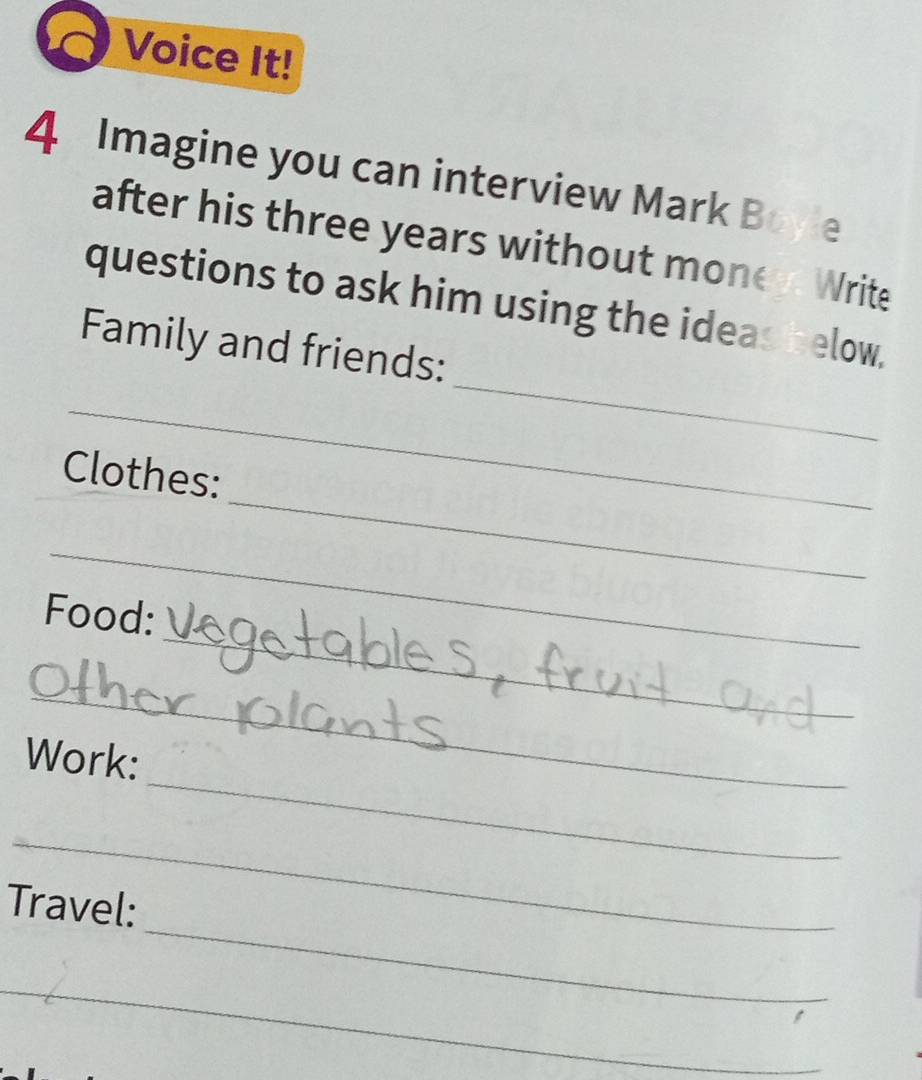 Voice It!
4 Imagine you can interview Mark Boyle
after his three years without money. Write
questions to ask him using the ideas below.
Family and friends:
Clothes:
Food: Vegetables, fruit and
Other plants
Work:
Travel: